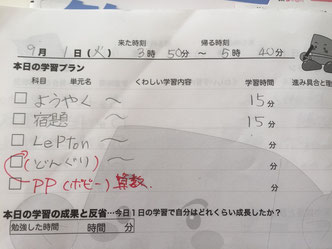 来た時刻 帰る時刻
9月 1日(火) 3時 50分 ～ 5時 40分
本日の学習プラン
科目 単元名 くわしい学習内容 学習時間 進み具合と理
□ ようやく ～ 15分
□ 宿題 ～ 15分
□ LePton ～ 分
□ (どんぐり) ～ 分
□ PP (ホピー) 算数. 分
本日の学習の成果と反省…今日1日の学習で自分はどれくらい成長したか?
勉強した時間 時間 分